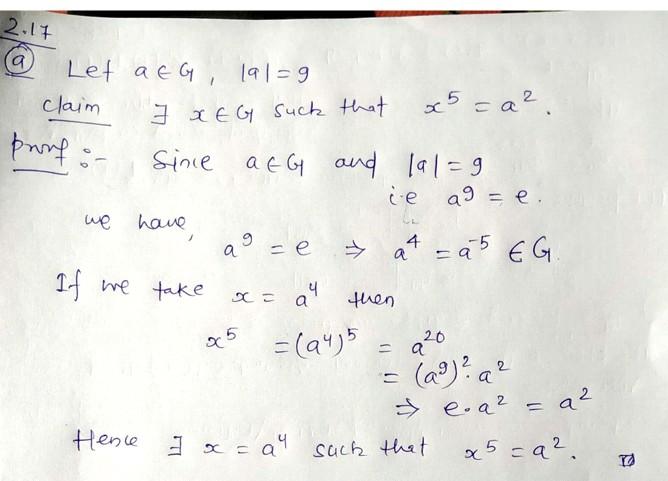 2.17
(a) Let a ∈ G, |a| = 9
claim ∃ x ∈ G such that x⁵ = a².
Proof :- Since a ∈ G and |a| = 9
i.e a⁹ = e.
we have,
a⁹ = e ⇒ a⁴ = a⁻⁵ ∈ G.
If we take x = a⁴ then
x⁵ = (a⁴)⁵ = a²⁰
= (a⁹)². a²
⇒ e. a² = a²
Hence ∃ x = a⁴ such that x⁵ = a².